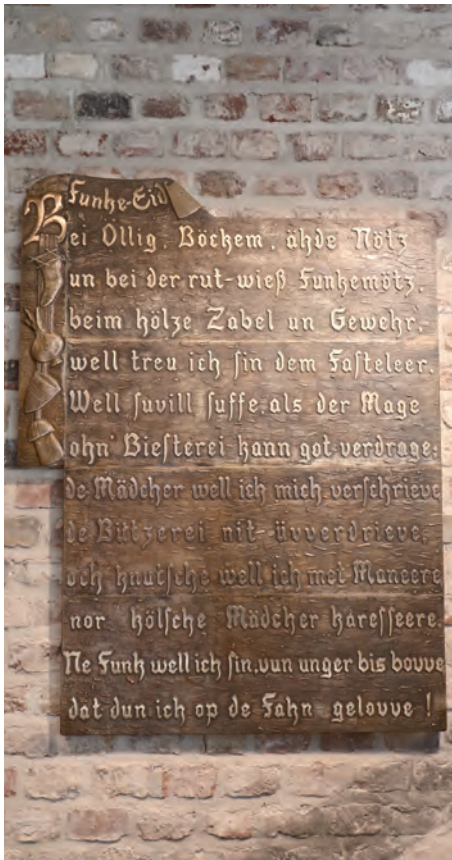 Funke-Eid
Bei Öllig, Böckem, ähde Nötz
un bei der rut-wieß Funkemötz,
beim hölze Zabel un Gewehr,
well treu ich sin dem Fasteleer.
Well suvill suffe, als der Mage
ohn' Biesterei kann got verdrage;
de Mädcher well ich mich verschrieve
de Bützerei nit üvverdrieve,
och knutsche well ich mei Maneere
nor kölsche Mädcher karesseere.
Ne Funk well ich sin, vun unger bis bovve
dat dun ich op de Fahn gelovve!